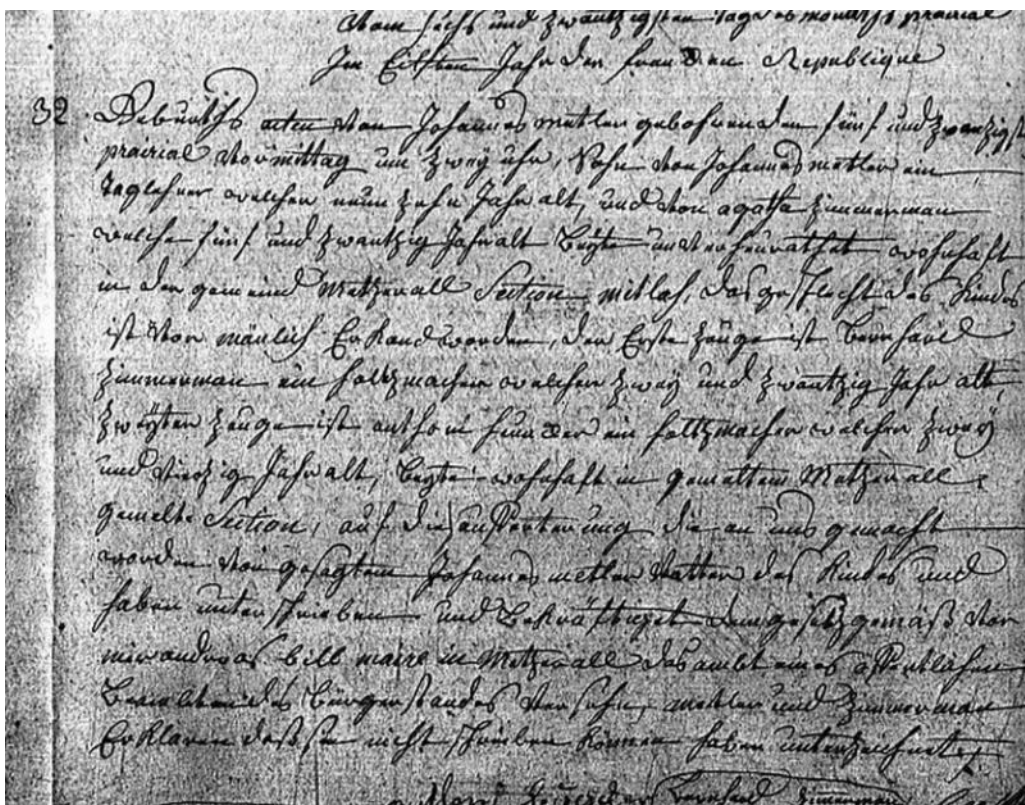 Vom sechs und zwantzigsten Tage des monaths prairial
Im Eilften Jahr der francken Republique
32 Geburths acten von Johannes metler gebohren den fünf und zwanzigst
prairial vormittag um zwey uhr, Sohn von Johannes metler ein
taglehner welcher neun zehn Jahr alt, und von agatha zimmerman
welche fünf und zwantzig Jahr alt beyte unverheurathet wohnhaft
in der gemeind Metzerall Section mitlach, das geschlecht des Kindes
ist vor mänlich Erkand worden, der Erste zeuge ist bernhard
zimmerman ein holtzmacher welcher zwey und zwantzig Jahr alt,
zweyter zeuge ist anthoni ein holtzmacher welcher zwey
und vierzig Jahr alt, beyte wohnhaft in gemeltem Metzerall
gemelte Section, auf die anforterung die an uns gemacht
worden von gesagtem Johannes metler vatter des Kindes und
haben unterschrieben und bekräftiget dem gesetz gemäß vor
mir andreas bill maire in Metzerall das ambt eines offentlichen
beamten des bürgerstandes versehn, metler und zimmerman
Erklaren daß sie nicht schreiben können haben unterzeichnet